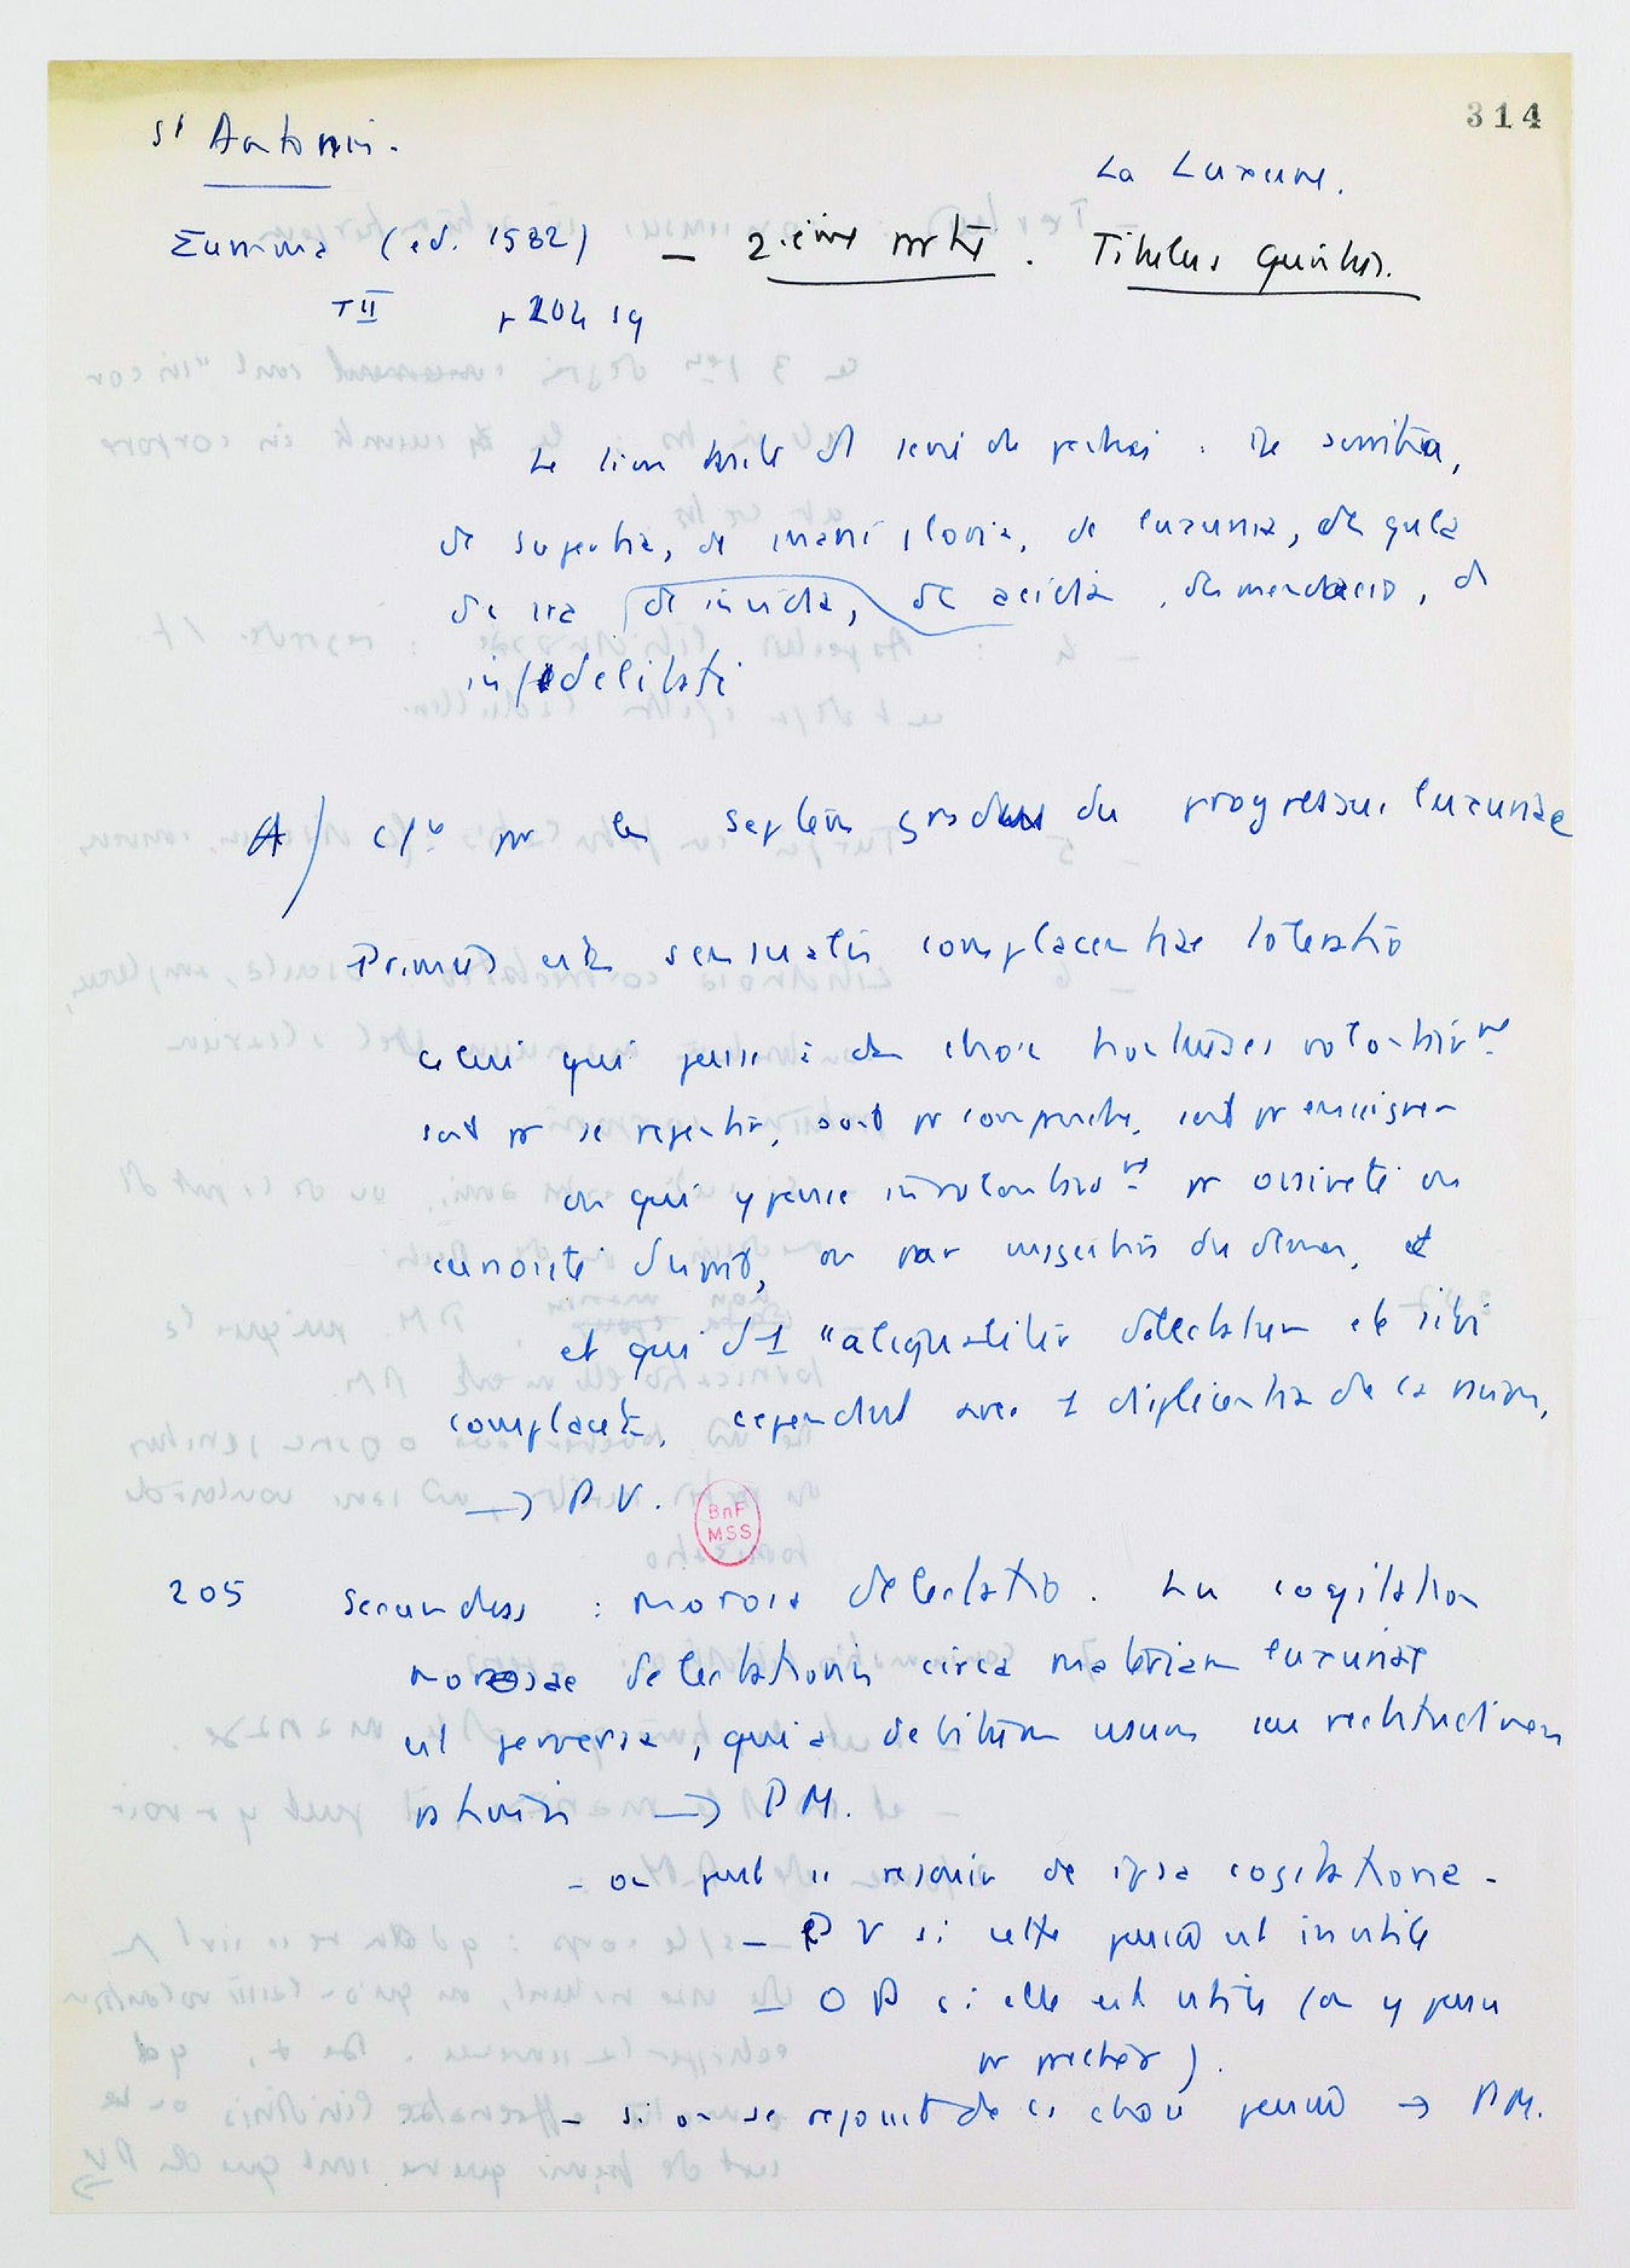 314
St Antonin.
La Luxure.
Summa (ed. 1582) — 2.ième partie. Titulus Quintus.
T II p 204 sq
Le livre traite de péchés : De avaritia,
de superbia, de inani gloria, de luxuria, de gula
de ira de invidia, de acidia, de mendacio, de
infidelitate
A/ les septem gradus du progressus luxuriae
Primus est sensualis complacentiae toleratio
celui qui pense à des choses honteuses volontairemt
soit pr se repentir, soit pr comprendre, soit pr enseigner
ou qui y pense involontairemt pr oisiveté ou
curiosité d'esprit, ou par suggestion du démon, et
et qui "aliqualiter delectatur et sibi
complacet", cependant avec 1 displicentia de la raison.
→ P V.
BnF MSS
205 Secundus : morosa delectatio. La cogitatio
morosae delectationis circa materiam luxuriae
est perversa, quia debitum usum seu rectitudinem
rationis → P M.
- on peut se réjouir de ipsa cogitatione -
- P V si cette pensée est inutile
- O P si elle est utile (on y pense
pr prêcher).
- si on se réjouit de la chose pensée → P M.